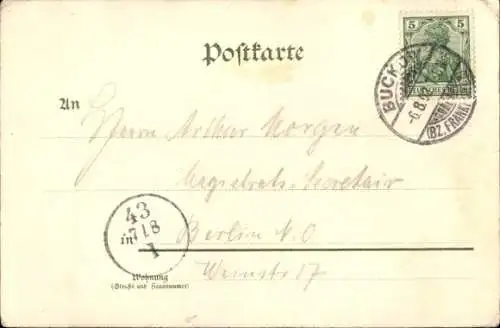 Postkarte
5 5
BUCKOW
-6.8.
(BZ. FRANKF.
An
Herrn Arthur Morgen
Magistrats-Secretair
43
in 718
1
Berlin N.O
Weinstr 17
Wohnung
(Straße und Hausnummer)